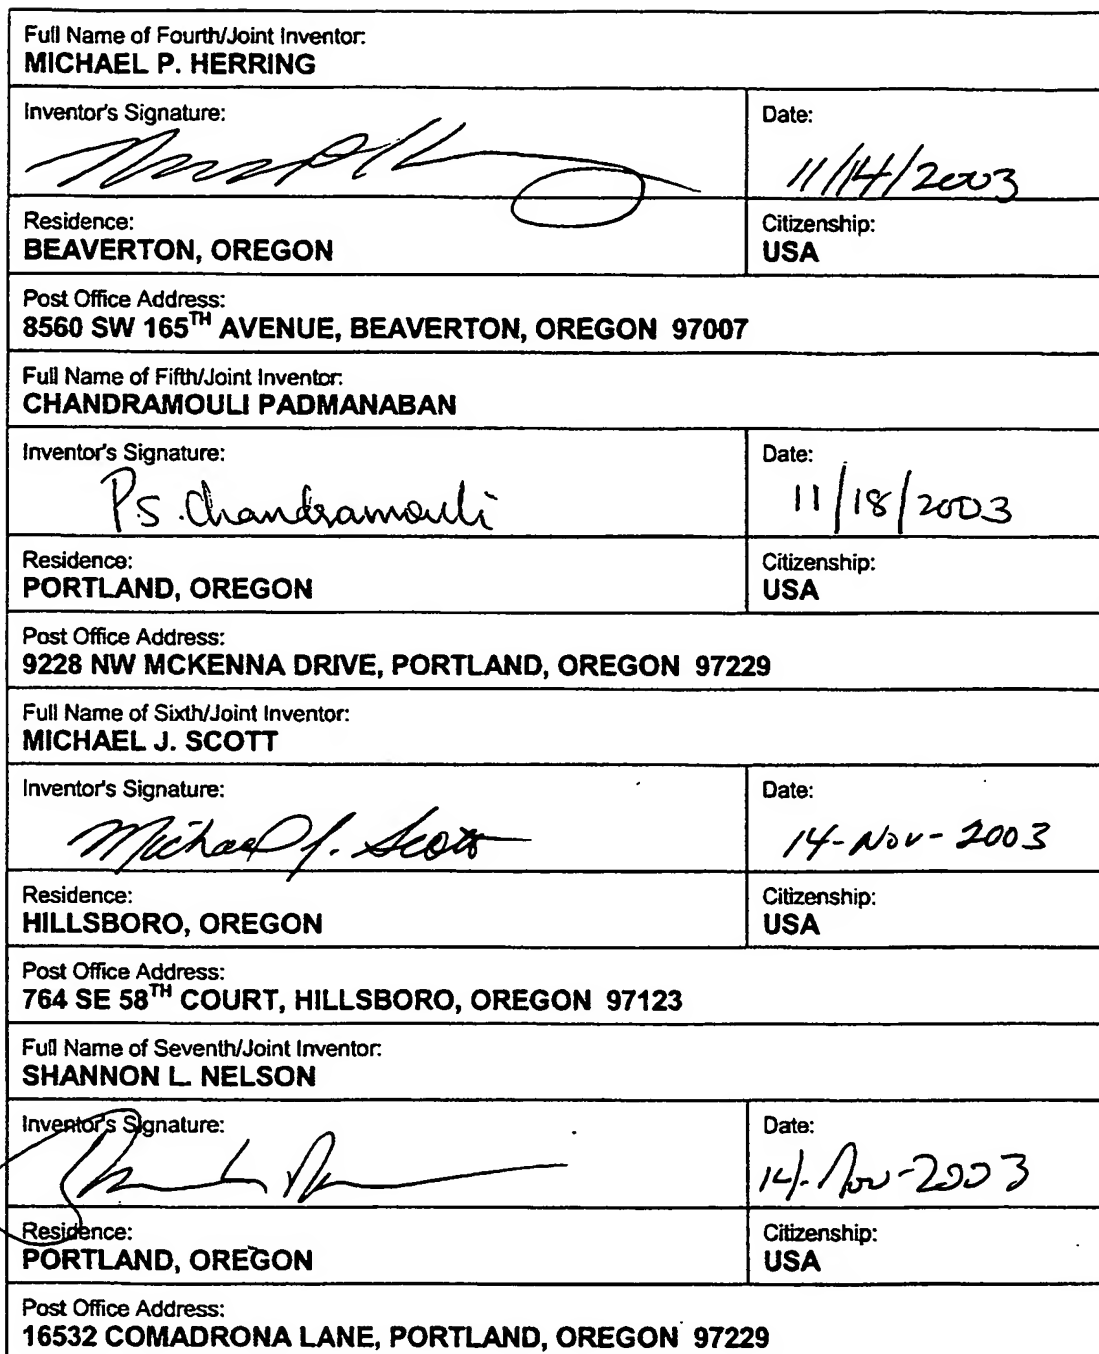 Full Name of Fourth/Joint Inventor:
MICHAEL P. HERRING
Inventor's Signature:
Date:
11/14/2003
Residence:
BEAVERTON, OREGON
Citizenship:
USA
Post Office Address:
8560 SW 165TH AVENUE, BEAVERTON, OREGON 97007
Full Name of Fifth/Joint Inventor:
CHANDRAMOULI PADMANABAN
Inventor's Signature:
P.S. Chandramouli
Date:
11/18/2003
Residence:
PORTLAND, OREGON
Citizenship:
USA
Post Office Address:
9228 NW MCKENNA DRIVE, PORTLAND, OREGON 97229
Full Name of Sixth/Joint Inventor:
MICHAEL J. SCOTT
Inventor's Signature:
Michael J. Scott
Date:
14-Nov-2003
Residence:
HILLSBORO, OREGON
Citizenship:
USA
Post Office Address:
764 SE 58TH COURT, HILLSBORO, OREGON 97123
Full Name of Seventh/Joint Inventor:
SHANNON L. NELSON
Inventor's Signature:
Date:
14-Nov-2003
Residence:
PORTLAND, OREGON
Citizenship:
USA
Post Office Address:
16532 COMADRONA LANE, PORTLAND, OREGON 97229